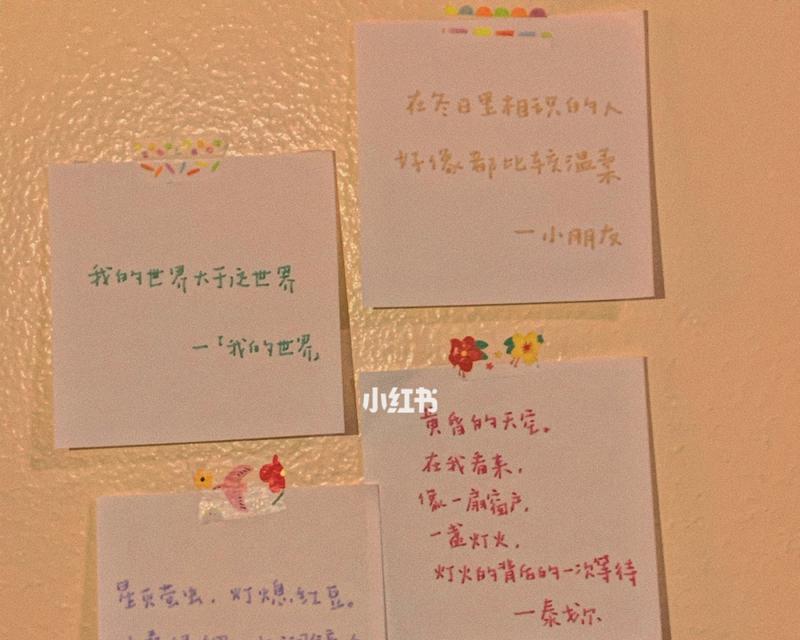 在冬日里相识的人
好像都比较温柔
一小朋友
我的世界大于这世界
一「我的世界」
小红书
黄昏的天空。
在我看来,
像一扇窗户,
一盏灯火,
灯火的背后的一次等待
一泰戈尔
灯熄红豆。